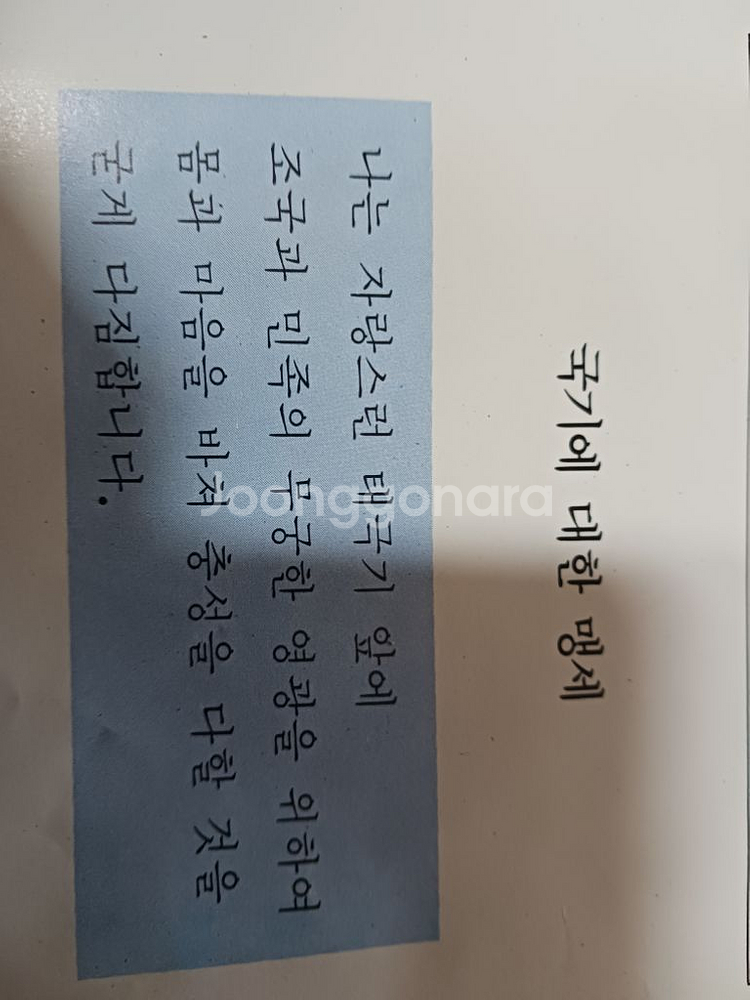 국기에 대한 맹세
나는 자랑스런 태극기 앞에
조국과 민족의 무궁한 영광을 위하여
몸과 마음을 바쳐 충성을 다할 것을
굳게 다짐합니다.
Joonggonara